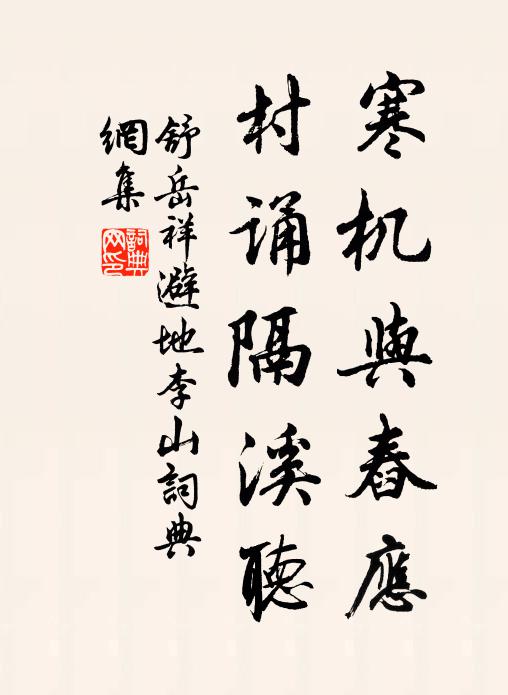 寒机與舂應
村诵隔溪聽
舒岳祥避地李山詞典
網集
詞典網印